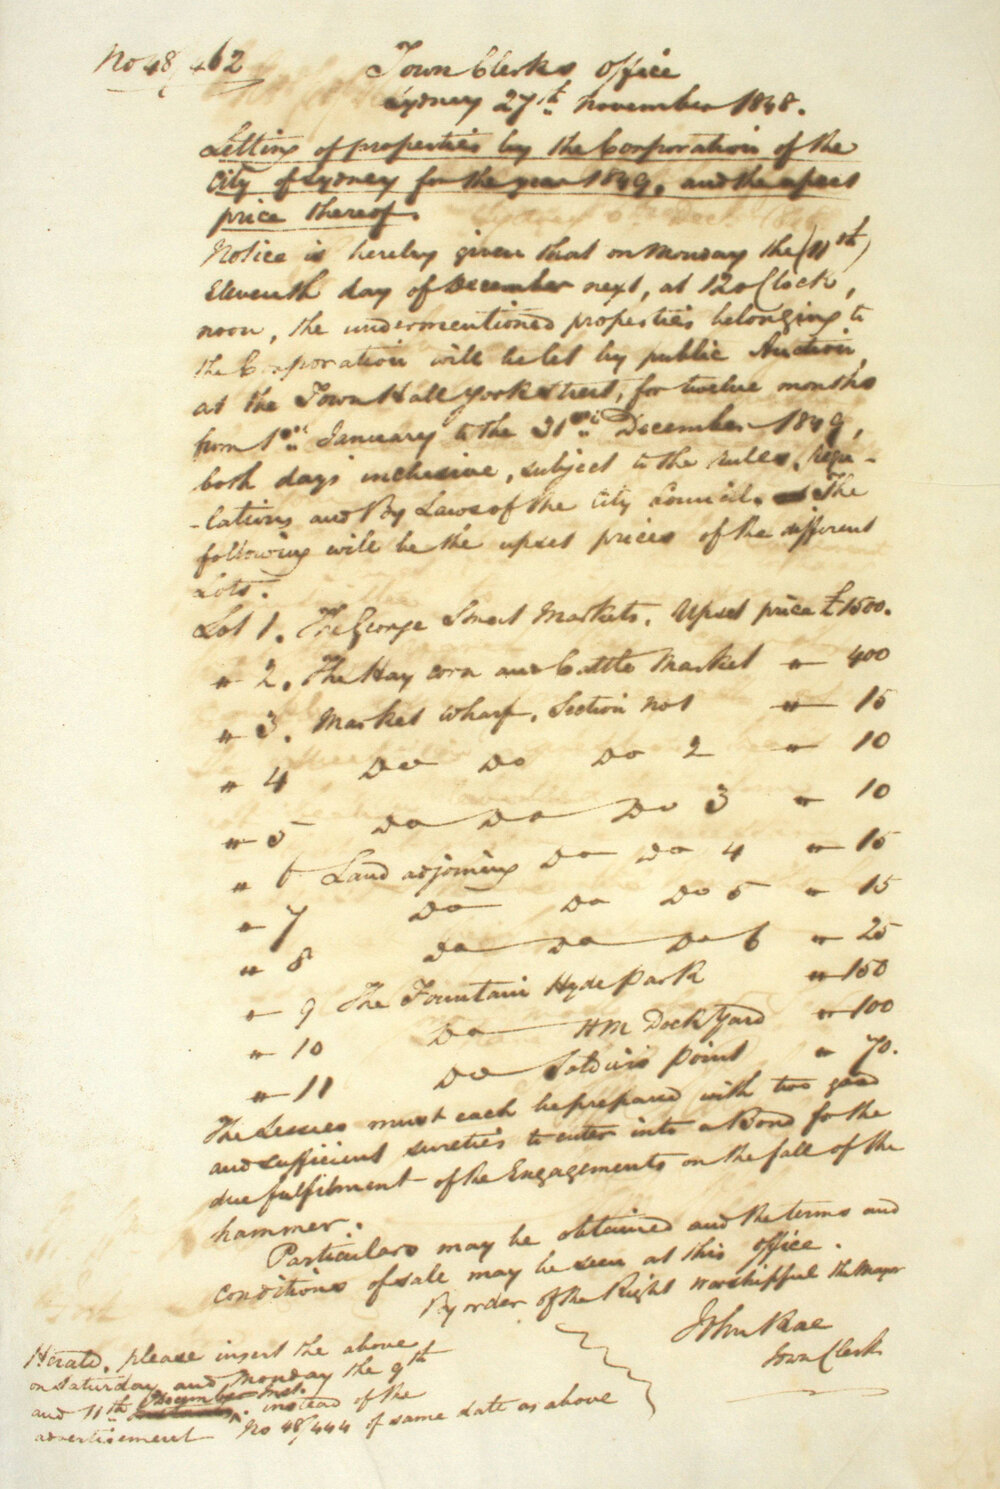 No 48/462
Town Clerks Office
Sydney 27th November 1848.
Letting of properties by the Corporation of the
City of Sydney for the year 1849, and the upset
price thereof.
Notice is hereby given that on Monday the (11th)
Eleventh day of December next, at 12 o'Clock,
noon, the undermentioned properties belonging to
the Corporation will be let by public Auction,
at the Town Hall York Street, for twelve months
from 1st January to the 31st December 1849,
both days inclusive, subject to the rules, regu-
-lations and By Laws of the City Council. The
following will be the upset prices of the different
Lots.
Lot 1. The George Street Markets. Upset price £1500.
" 2. The Hay corn and Cattle Market " 400
" 3. Market Wharf, Section No 1 " 15
" 4 Do Do Do 2 " 10
" 5 Do Do Do 3 " 10
" 6 Land adjoining Do Do 4 " 15
" 7 Do Do Do 5 " 15
" 8 Do Do Do 6 " 25
" 9 The Fountain Hyde Park " 150
" 10 Do HM Dock Yard " 100
" 11 Do Soldiers point " 70.
The Lessees must each be prepared with two good
and sufficient sureties to enter into a Bond for the
due fulfilment of the Engagements on the fall of the
hammer.
Particulars may be obtained and the terms and
conditions of sale may be seen at this office.
By order of the Right Worshipful the Mayor
John Rae
Town Clerk
Herald, please insert the above
on Saturday and Monday the 9th
and 11th December inst. instead of the
advertisement No 48/444 of same date as above